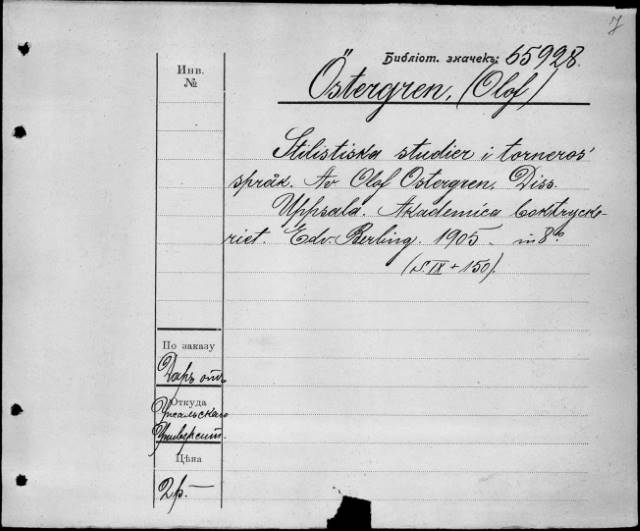 7
Библіот. значекъ: 65928.
Инв.
№
Östergren, (Olof)
Stilistiska studier i torneros'
språk. Av Olof Östergren. Diss.
Uppsala. Akademica boktrycke-
riet. Edv. Berling. 1905. in 8º.
(S. IX + 150).
По заказу
Даръ отъ
Откуда
Упсальскаго
Университ.
Цѣна
2р.—